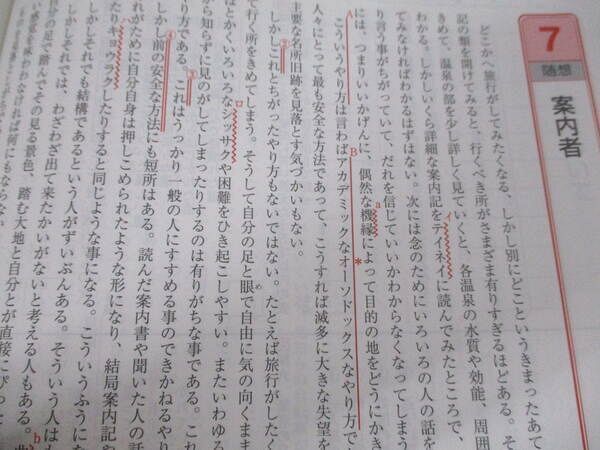 7
随想
案内者
どこかへ旅行がしてみたくなる、しかし別にどこというきまったあて
記の類を開けてみると、行くべき所がさまざま有りすぎるほどある。そ
きめて、温泉の部を少し詳しく見ていくと、各温泉の水質や効能、周囲
イ
わかる。しかしいくら詳細な案内記をテイネイに読んでみたところで、
てみなければわかるはずはない。次には念のためにいろいろの人の話を
り言う事がちがっていて、だれを信じていいかわからなくなってしまう
a
には、つまりいいかげんに、偶然な機縁によって目的の地をどうにかき
B *
こういうやり方は言わばアカデミックなオーソドックスなやり方で
人々にとって最も安全な方法であって、こうすれば滅多に大きな失望を
主要な名所旧跡を見落とす気づかいもない。
2
しかしこれとちがったやり方もないではない。たとえば旅行がしたく
て行く所をきめてしまう。そうして自分の足と眼で自由に気の向くまま
ロ め
はとかくいろいろなシッサクや困難をひき起こしやすい。またいわゆる
から知らずに見のがしてしまったりするのは有りがちな事である。これ
3
り方である。これはうっかり一般の人にすすめる事のできかねるやり
4
しかし前の安全な方法にも短所はある。読んだ案内書や聞いた人の話
れがために自分自身は押しこめられたような形になり、結局案内記や
ハ
たりキョウラクしたりすると同じような事になる。こういうふうにな
しかしそれでも結構であるという人がずいぶんある。そういう人は
b
しかしそれでは、わざわざ出て来たかいがないと考える人もある。
の足で踏んでその見る景色、踏む大地と自分とが直接にぴった
味わわなければ何にもならない